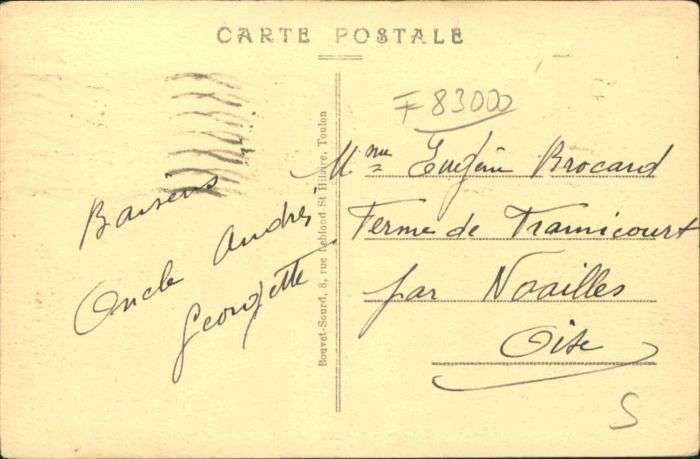 CARTE POSTALE
F 83000
Baisers
Oncle André
Georgette
Bouvet-Sourd, 8, rue Leblond St Hilaire, Toulon
Mme Eugène Brocard
Ferme de Tramicourt
par Noailles
Oise
S